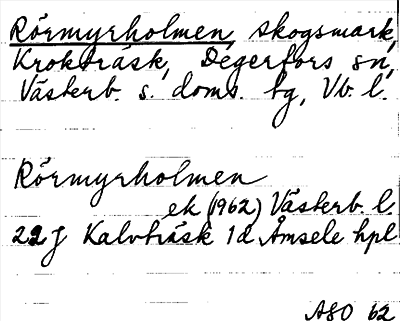 Rörmyrholmen, skogsmark,
Krokträsk, Degerfors sn,
Västerb. s. doms. bg, Vb. l.
Rörmyrholmen
ek (1962) Västerb. l.
22 J Kalvträsk 1d Åmsele hpl
ASO 62